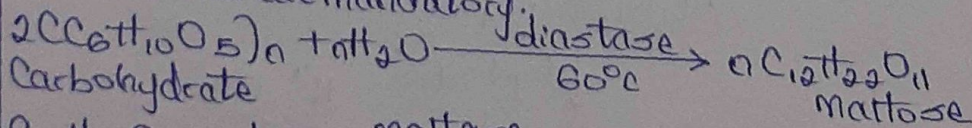 2(C₆H₁₀O₅)n + nH₂O diastase
60°C → nC₁₂H₂₂O₁₁
Carbohydrate Maltose